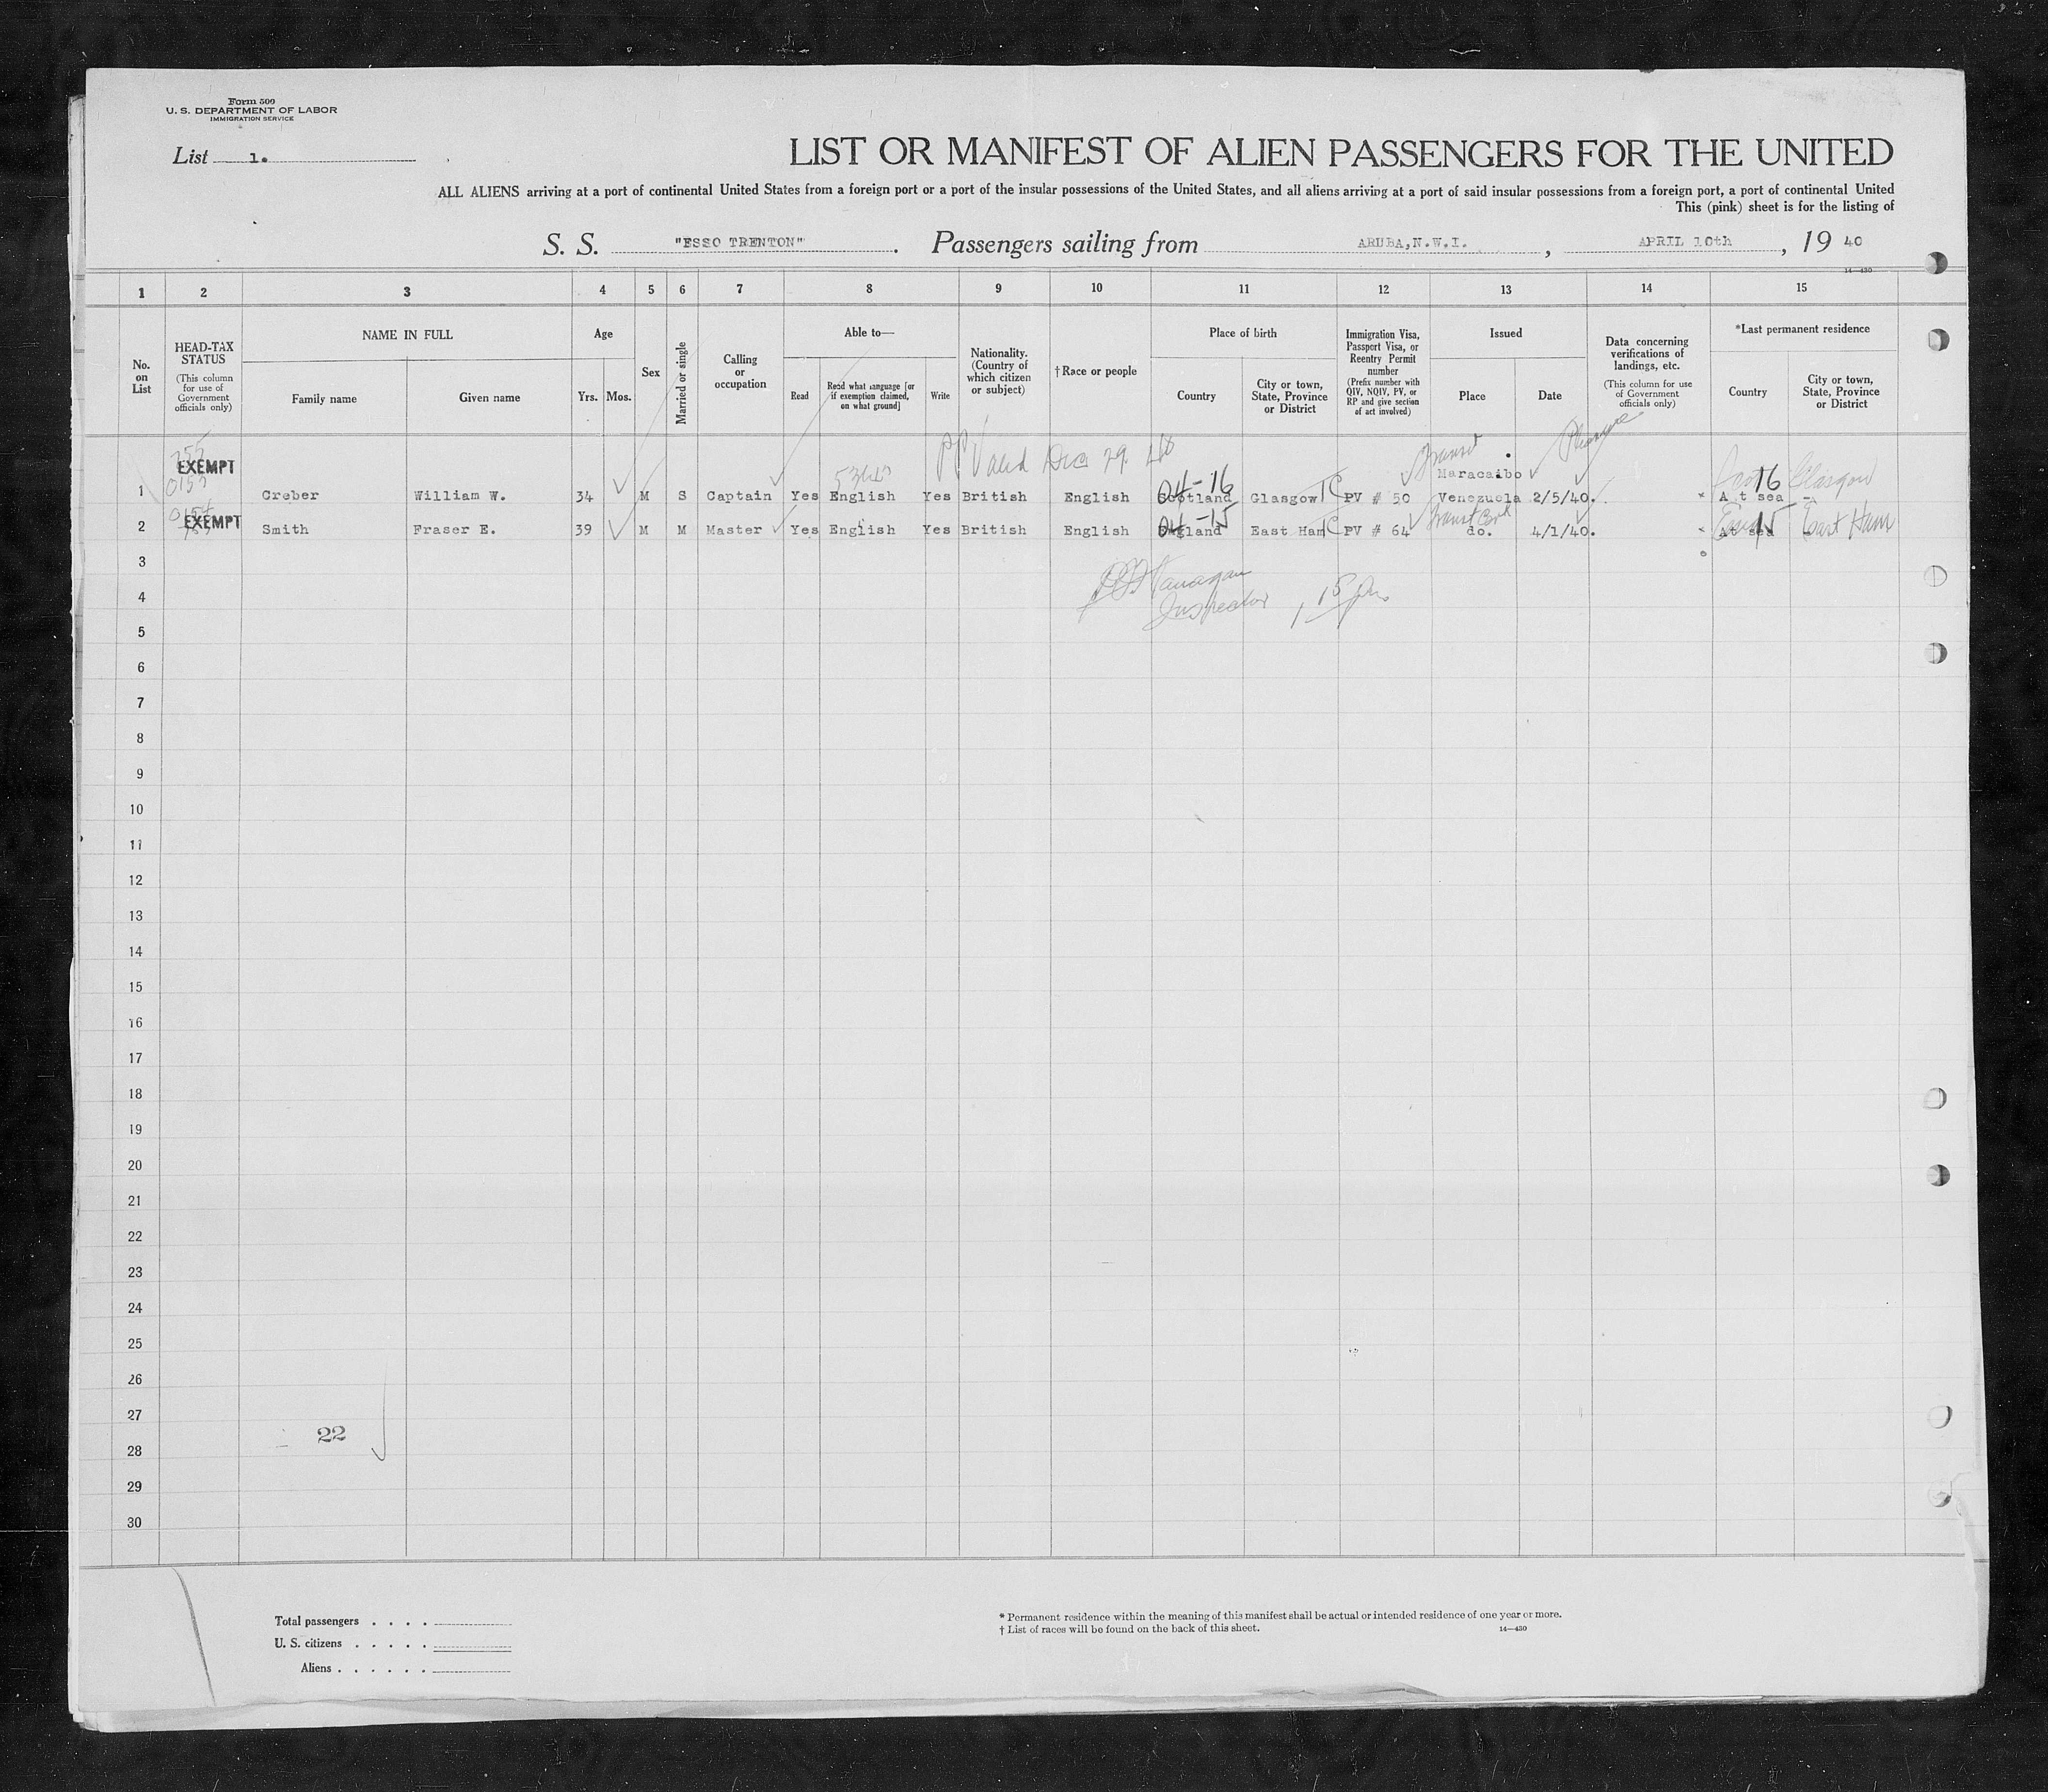 Form 500
U. S. DEPARTMENT OF LABOR
IMMIGRATION SERVICE
List 1.
LIST OR MANIFEST OF ALIEN PASSENGERS FOR THE UNITED
ALL ALIENS arriving at a port of continental United States from a foreign port or a port of the insular possessions of the United States, and all aliens arriving at a port of said insular possessions from a foreign port, a port of continental United
This (pink) sheet is for the listing of
S. S. "ESSO TRENTON". Passengers sailing from ARUBA,N.W.I. , APRIL 10th , 19 40
14—430
1 2 3 4 5 6 7 8 9 10 11 12 13 14 15
No. on List
HEAD-TAX STATUS
(This column for use of Government officials only)
NAME IN FULL
Family name
Given name
Age
Yrs. Mos.
Sex
Married or single
Calling or occupation
Able to—
Read
Read what language [or if exemption claimed, on what ground]
Write
Nationality. (Country of which citizen or subject)
†Race or people
Place of birth
Country
City or town, State, Province or District
Immigration Visa, Passport Visa, or Reentry Permit number
(Prefix number with QIV, NQIV, PV, or RP and give section of act involved)
Issued
Place
Date
Data concerning verifications of landings, etc.
(This column for use of Government officials only)
*Last permanent residence
Country
City or town, State, Province or District
PP Valid Dec 29 40
Transit
Pleasure
EXEMPT
Maracaibo
04-16
16 Glasgow
1 Creber William W. 34 M S Captain Yes English Yes British English Scotland Glasgow PV # 50 Venezuola 2/5/40. At sea -
EXEMPT
04-15
Transit
15 East Ham
2 Smith Fraser E. 39 M M Master Yes English Yes British English England East Ham PV # 64 do. 4/1/40. At sea -
3
4
Inspector
5
6
7
8
9
10
11
12
13
14
15
16
17
18
19
20
21
22
23
24
25
26
27
22
28
29
30
Total passengers . . . .
U. S. citizens . . . . .
Aliens . . . . . .
* Permanent residence within the meaning of this manifest shall be actual or intended residence of one year or more.
† List of races will be found on the back of this sheet.
14—430